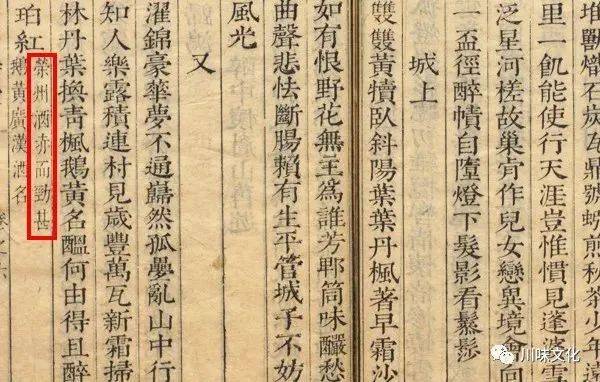 堆獸熾石炭瓦鼎號蚓煎秋茶少年
里一飢能使行天涯豈惟慣見蓬婆雪
泛星河槎故巢肯作兒女戀異境會向
一盃徑醉幘自墮燈下髮影看鬖髿
城上
雙雙黃犢臥斜陽葉葉丹楓著早霜沙
如有恨野花無主為誰芳郫筒味釅愁
曲聲悲怯斷腸賴有生平管城子不妨
風光
又
濯錦豪華夢不通巋然孤壘亂山中行
知人樂露積連村見歲豐萬瓦新霜掃
林丹葉換青楓鵝黃名醞何由得且醉
珀紅
榮州酒赤而勁甚
鵝黃廣漢酒名
川味文化